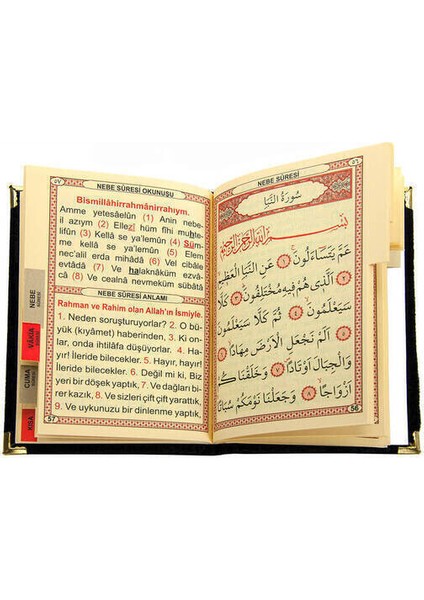 ٥٧
NEBE SÛRESİ OKUNUŞU
Bismillâhirrahmânirrahıym.
Amme yetesaelûn (1) Anin nebe-
il azıym (2) Ellez! hüm fîhi muhte-
lifûn (3) Kellâ se ya'lemûn (4) Süm-
me kellâ se ya'lemûn (5) Elem
nec'alil erda mihâdâ (6) Vel cibâle
evtâdâ (7) Ve halaknâküm ezvâ-
câ (8) Ve cealnâ nevmeküm sübâtâ
NEBE SÛRESİ ANLAMI
Rahman ve Rahim olan Allah'ın İsmiyle.
1. Neden soruşturuyorlar? 2. O bü-
yük (kıyâmet) haberinden, 3. Ki on-
lar, onda ihtilâfa düşüyorlar. 4. Ha-
yır! İleride bilecekler. 5. Hayır, hayır!
İleride bilecekler. 6. Değil mi ki, Biz
yeri bir döşek yaptık, 7. Ve dağları bi-
rer kazık, 8. Ve sizleri çift çift yarattık,
9. Ve uykunuzu bir dinlenme yaptık,
57
NEBE
SÛRESİ
VÂKIA
SÛRESİ
CUMA
SÛRESİ
KISA
٥٦
NEBE SÛRESİ
سُورَةُ النَّبَأِ
بِسْمِ اللّٰهِ الرَّحْمٰنِ الرَّحِيمِ
عَمَّ يَتَسَاءَلُونَ ﴿١﴾ عَنِ النَّبَأِ الْعَظِيمِ
﴿٢﴾ اَلَّذِي هُمْ فِيهِ مُخْتَلِفُونَ ﴿٣﴾ كَلَّا
سَيَعْلَمُونَ ﴿٤﴾ ثُمَّ كَلَّا سَيَعْلَمُونَ
﴿٥﴾ اَلَمْ نَجْعَلِ الْاَرْضَ مِهَادًا ﴿٦﴾
وَالْجِبَالَ اَوْتَادًا ﴿٧﴾ وَخَلَقْنَاكُمْ
اَزْوَاجًا ﴿٨﴾ وَجَعَلْنَا نَوْمَكُمْ سُبَاتًا
56